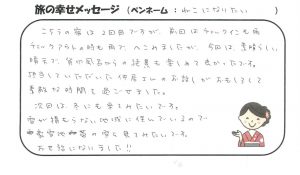 旅の幸せメッセージ (ペンネーム : ねこになりたい )
こちらの宿は2回目ですが、前回はチェックインも雨
チェックアウトの時も雨で、へこみましたが、今回は、素晴らしい
晴天で、貸切風呂からの絶景も楽しめて良かったです。
担当していただいた仲居さんのお話しがおもしろくて
素敵な時間を過ごせました。
次回は、冬にも来てみたいです。
雪が積もらない地域に住んでいるので
雪の宿も見てみたいです。
お世話になりました!!